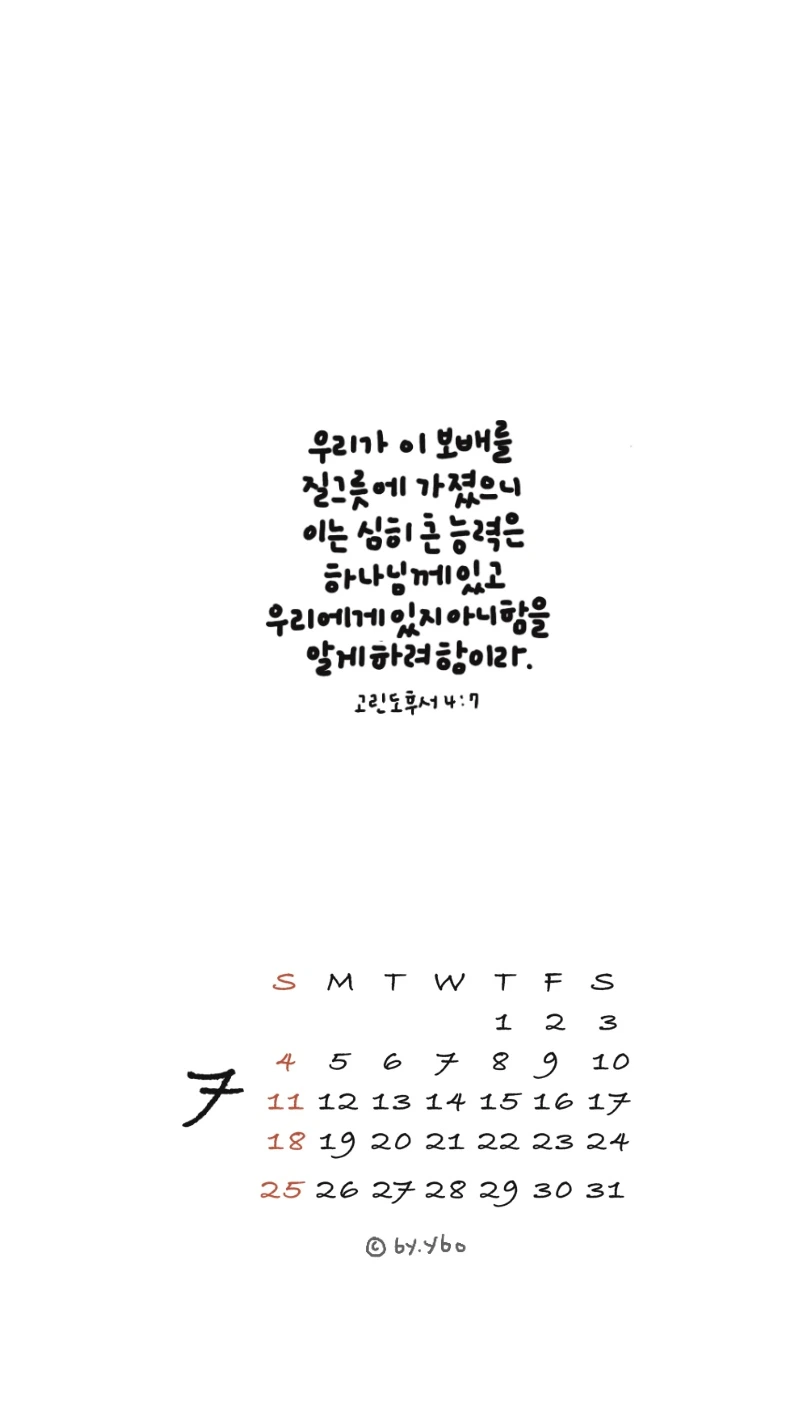 우리가 이 보배를
질그릇에 가졌으니
이는 심히 큰 능력은
하나님께 있고
우리에게 있지 아니함을
알게 하려 함이라.
고린도후서 4:7
S M T W T F S
1 2 3
4 5 6 7 8 9 10
7
11 12 13 14 15 16 17
18 19 20 21 22 23 24
25 26 27 28 29 30 31
© by.ybo